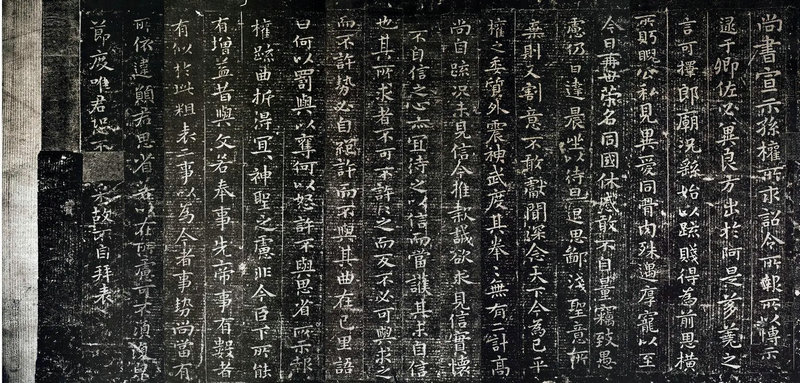 尚書宣示孫權所求詔令所報所以博示
逮于卿佐必冀良方出於阿是芻蕘之
言可擇郎廟況繇始以疏賤得為前恩橫
所盼睨公私見異愛同骨肉殊遇厚寵以至
今日再世榮名同國休慼敢不自量竊致愚
慮仍日達晨坐以待旦退思鄙淺聖意所
棄則又割意不敢獻聞深念天下今為已平
權之委質外震神武度其拳々無有二計高
尚自疏況未見信今推款誠欲求見信實懷
不自信之心亦宜待之以信而當護其未自信
也其所求者不可不許許之而反不必可與求之
而不許勢必自絕許而不與其曲在己里語
曰何以罰與以奪何以怒許不與思省所示報
權疏曲折得宜宜神聖之慮非今臣下所能
有增益昔與文若奉事先帝事有數者
有似於此粗表二事以為今者事勢尚當有
所依違願君思省若以在所慮可不須復貌
節度唯君恐不采故不自拜表